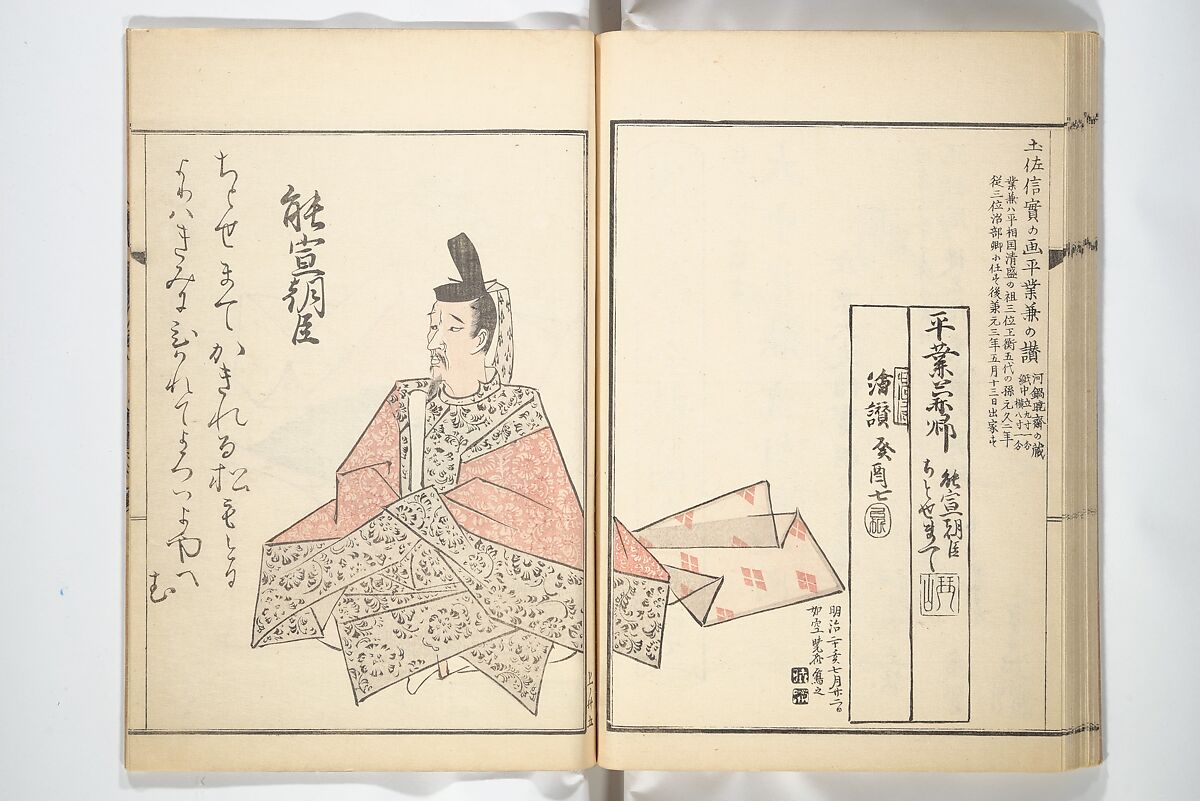 土佐信實の画平業兼の讃
河鍋暁斎の蔵
紙中 立九寸一分
横八寸一分
業兼ハ平相国清盛の祖三位正衡五代の孫元久二年
従三位治部卿に任す後兼元三年五月十三日出家す
平業兼卿
能宣朝臣
ちとせまて
繪讃
癸酉七
明治二十亥七月廿二日
如空暁斎写之
能宣朝臣
ちとせまてかきれる松もけふ
よりハきみにひかれてよろつよやへ
む
上ノ廿五